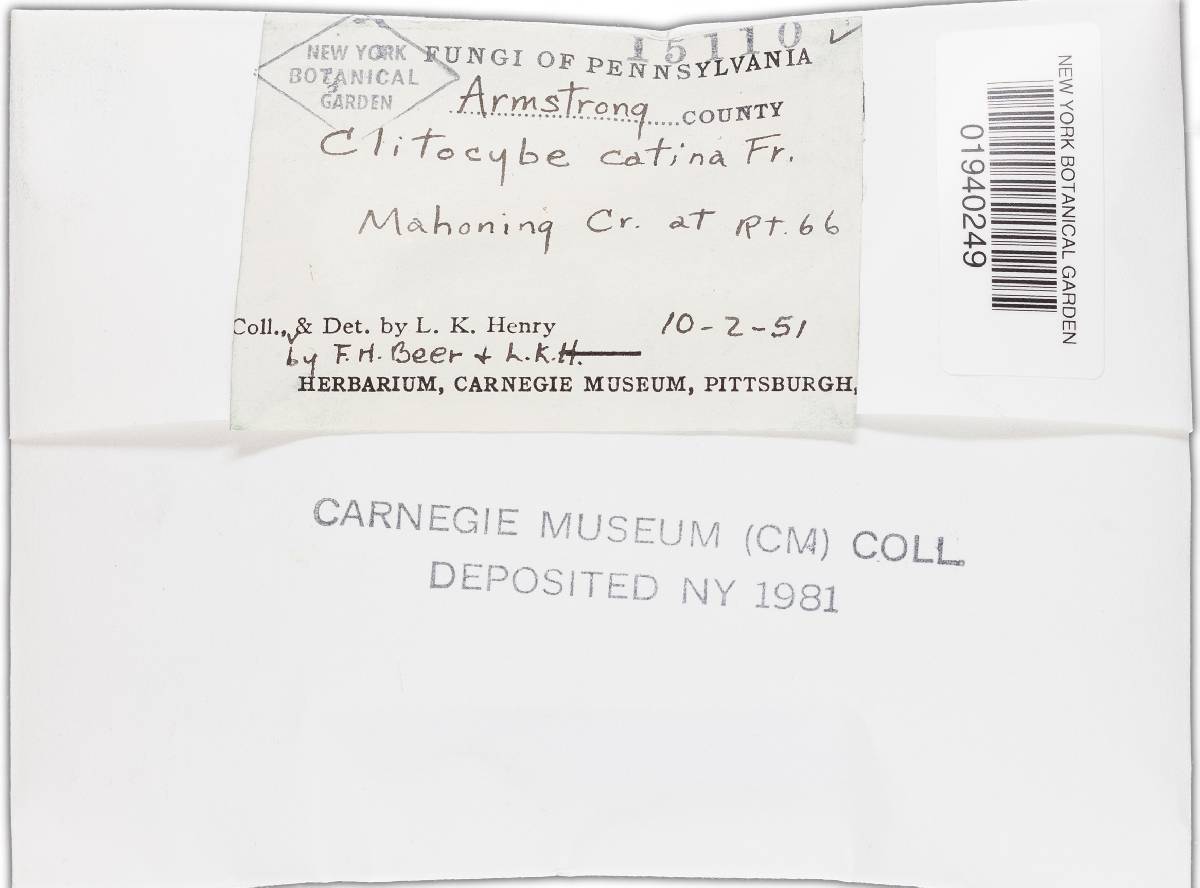 15110 ✓
NEW YORK
BOTANICAL
GARDEN
FUNGI OF PENNSYLVANIA
Armstrong COUNTY
Clitocybe catina Fr.
Mahoning Cr. at Rt. 66
Coll., & Det. by L. K. Henry 10-2-51
by F.H. Beer & L.K.H.
HERBARIUM, CARNEGIE MUSEUM, PITTSBURGH,
NEW YORK BOTANICAL GARDEN
01940249
CARNEGIE MUSEUM (CM) COLL.
DEPOSITED NY 1981